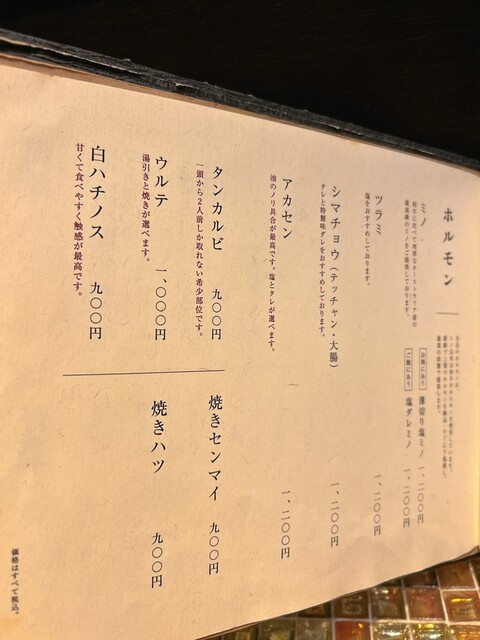 ホルモン
ミノ
最高級のミノをご提供しております。
お酒にあう
薄切り塩ミノ 一、二〇〇円
ご飯にあう
塩ダレミノ 一、二〇〇円
ツラミ 一、二〇〇円
塩をおすすめしております。
シマチョウ(テッチャン・大腸) 一、二〇〇円
タレと特製味ダレをおすすめしております。
アカセン 一、二〇〇円
油のノリ具合が最高です。塩とタレが選べます。
タンカルビ 九〇〇円
一頭から2人前しか取れない希少部位です。
ウルテ 一、〇〇〇円
湯引きと焼きが選べます。
白ハチノス 九〇〇円
甘くて食べやすく触感が最高です。
焼きセンマイ 九〇〇円
焼きハツ 九〇〇円
価格はすべて税込。